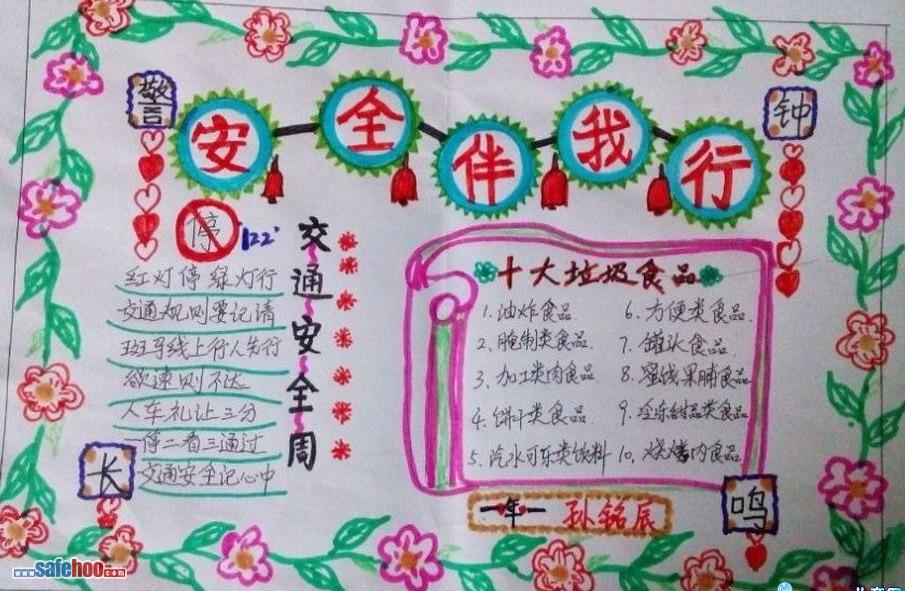 警
钟
长
鸣
安全伴我行
停
122
红灯停绿灯行
交通规则要记请
斑马线上行人先行
欲速则不达
人车礼让三分
一停二看三通过
交通安全记心中
交通安全周
十大垃圾食品
1.油炸食品
2.腌制类食品
3.加工类肉食品
4.饼干类食品
5.汽水可乐类饮料
6.方便类食品
7.罐头食品
8.蜜饯果脯食品
9.冷冻甜品类食品
10.烧烤肉食品
一年一 孙铭辰
www.safehoo.com